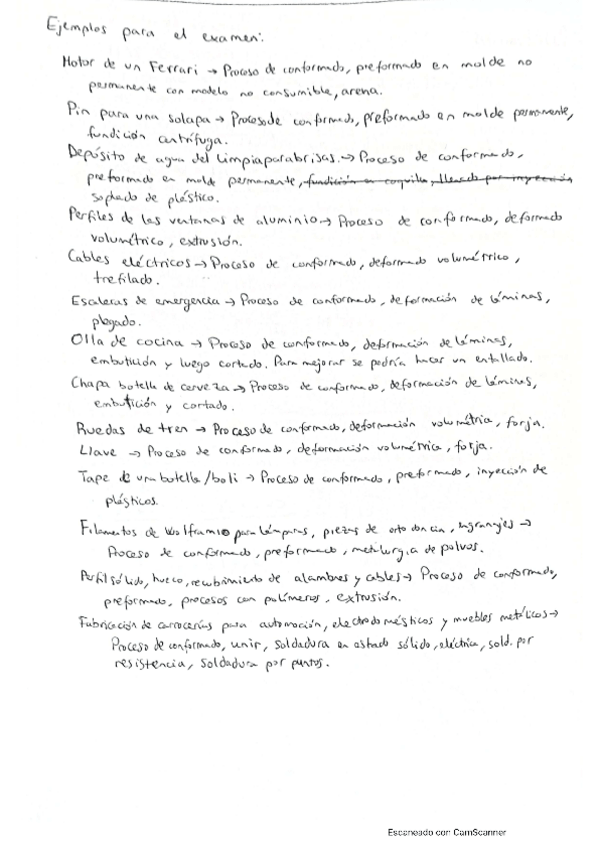 Ejemplos para el examen:
Motor de un Ferrari → Proceso de conformado, preformado en molde no
permanente con modelo no consumible, arena.
Pin para una solapa → Proceso de conformado, preformado en molde permanente,
fundición centrífuga.
Depósito de agua del limpiaparabrisas. → Proceso de conformado,
preformado en molde permanente, fundición en coquilla, llenado por inyección
soplado de plástico.
Perfiles de las ventanas de aluminio → Proceso de conformado, deformado
volumétrico, extrusión.
Cables eléctricos → Proceso de conformado, deformado volumétrico,
trefilado.
Escaleras de emergencia → Proceso de conformado, deformación de láminas,
plegado.
Olla de cocina → Proceso de conformado, deformación de láminas,
embutición y luego cortado. Para mejorar se podría hacer un entallado.
Chapa botella de cerveza → Proceso de conformado, deformación de láminas,
embutición y cortado.
Ruedas de tren → Proceso de conformado, deformación volumétria, forja.
Llave → Proceso de conformado, deformación volumétrica, forja.
Tape de una botella/boli → Proceso de conformado, preformado, inyección de
plásticos.
Filamentos de Wolframio para lámparas, piezas de ortodoncia, engranajes →
Proceso de conformado, preformado, metalurgia de polvos.
Perfil sólido, hueco, recubrimiento de alambres y cables → Proceso de conformado,
preformado, procesos con polímeros, extrusión.
Fabricación de carrocerías para automoción, electrodomésticos y muebles metálicos →
Proceso de conformado, unir, soldadura en estado sólido, eléctrica, sold. por
resistencia, soldadura por puntos.
Escaneado con CamScanner